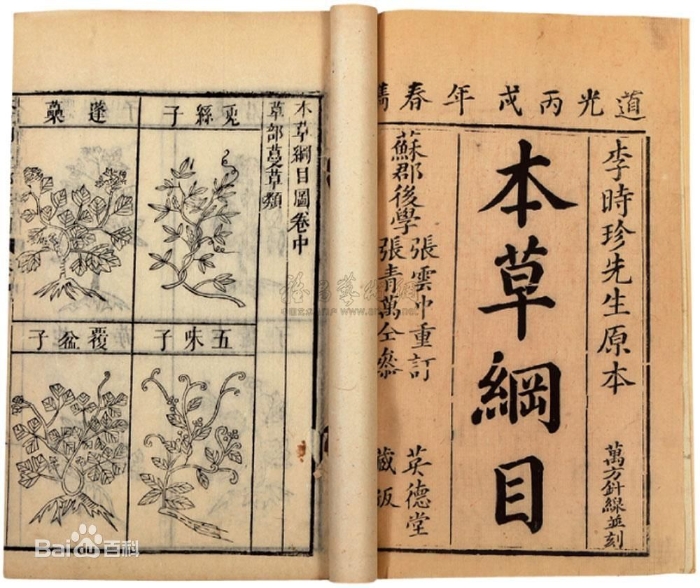 道光丙戌年春鐫
李時珍先生原本
萬方針線並刻
本草綱目
蘇郡後學
張雲中重訂
張青萬仝參
英德堂
藏板
本草綱目圖卷中
草部蔓草類
兎絲子
蓬蘽
五味子
覆盆子
Bai百科